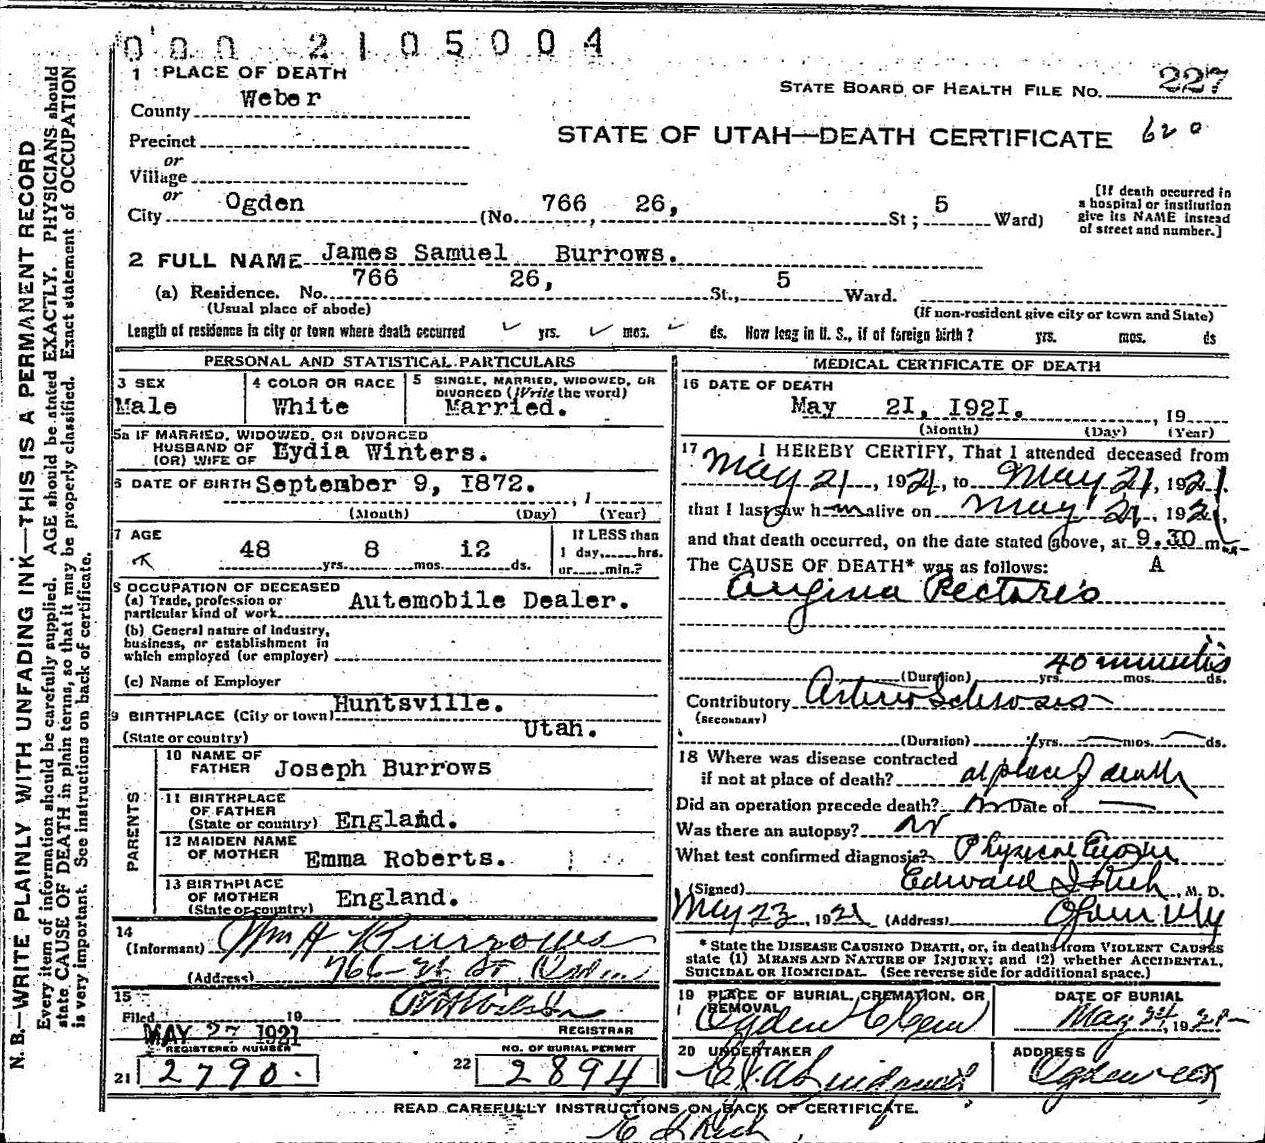 000 2105004
1 PLACE OF DEATH
STATE BOARD OF HEALTH FILE NO. 227
County Weber
STATE OF UTAH—DEATH CERTIFICATE 620
Precinct
or
Village
or
City Ogden (No. 766 26, St; 5 Ward)
[If death occurred in
a hospital or institution
give its NAME instead
of street and number.]
2 FULL NAME James Samuel Burrows.
(a) Residence. No. 766 26, St., 5 Ward.
(Usual place of abode) (If non-resident give city or town and State)
Length of residence in city or town where death occurred yrs. mos. ds. How long in U. S., if of foreign birth? yrs. mos. ds
PERSONAL AND STATISTICAL PARTICULARS
3 SEX
Male
4 COLOR OR RACE
White
5 SINGLE, MARRIED, WIDOWED, OR
DIVORCED (Write the word)
Married.
5a IF MARRIED, WIDOWED, OR DIVORCED
HUSBAND OF
(OR) WIFE OF Lydia Winters.
6 DATE OF BIRTH September 9, I872. , 1
(Month) (Day) (Year)
7 AGE
48 yrs. 8 mos. I2 ds.
If LESS than
1 day, hrs.
or min.?
8 OCCUPATION OF DECEASED
(a) Trade, profession or
particular kind of work Automobile Dealer.
(b) General nature of industry,
business, or establishment in
which employed (or employer)
(c) Name of Employer
9 BIRTHPLACE (City or town) Huntsville.
(State or country) Utah.
PARENTS
10 NAME OF
FATHER Joseph Burrows
11 BIRTHPLACE
OF FATHER
(State or country) England.
12 MAIDEN NAME
OF MOTHER Emma Roberts.
13 BIRTHPLACE
OF MOTHER
(State or country) England.
14
(Informant) Wm H Burrows
(Address) 766-26 St Ogden
15
Filed MAY 27 1921 19
REGISTRAR
REGISTERED NUMBER
21 2790.
NO. OF BURIAL PERMIT
22 2894
MEDICAL CERTIFICATE OF DEATH
16 DATE OF DEATH
May 2I, I92I. , 19
(Month) (Day) (Year)
17 I HEREBY CERTIFY, That I attended deceased from
May 21, 1921, to May 21, 1921.
that I last saw him alive on May 21, 1921,
and that death occurred, on the date stated above, at 9.30 m.
A
The CAUSE OF DEATH* was as follows:
Angina Pectoris
40 minutes
(Duration) yrs. mos. ds.
Contributory Arterio Sclerosis
(SECONDARY)
(Duration) yrs. mos. ds.
18 Where was disease contracted
if not at place of death? at place of death
Did an operation precede death? no Date of —
Was there an autopsy? no
What test confirmed diagnosis? Physical Exam
(Signed) Edward I Rich, M. D.
May 23, 1921 (Address) Ogden Utah
* State the DISEASE CAUSING DEATH, or, in deaths from VIOLENT CAUSES
state (1) MEANS AND NATURE OF INJURY; and (2) whether ACCIDENTAL,
SUICIDAL OR HOMICIDAL. (See reverse side for additional space.)
19 PLACE OF BURIAL, CREMATION, OR
REMOVAL
Ogden
DATE OF BURIAL
May 24, 1921
20 UNDERTAKER
ADDRESS
Ogden
READ CAREFULLY INSTRUCTIONS ON BACK OF CERTIFICATE.
E I Rich
N. B.—WRITE PLAINLY WITH UNFADING INK—THIS IS A PERMANENT RECORD
Every item of information should be carefully supplied. AGE should be stated EXACTLY. PHYSICIANS should
state CAUSE OF DEATH in plain terms, so that it may be properly classified. Exact statement of OCCUPATION
is very important. See instructions on back of certificate.